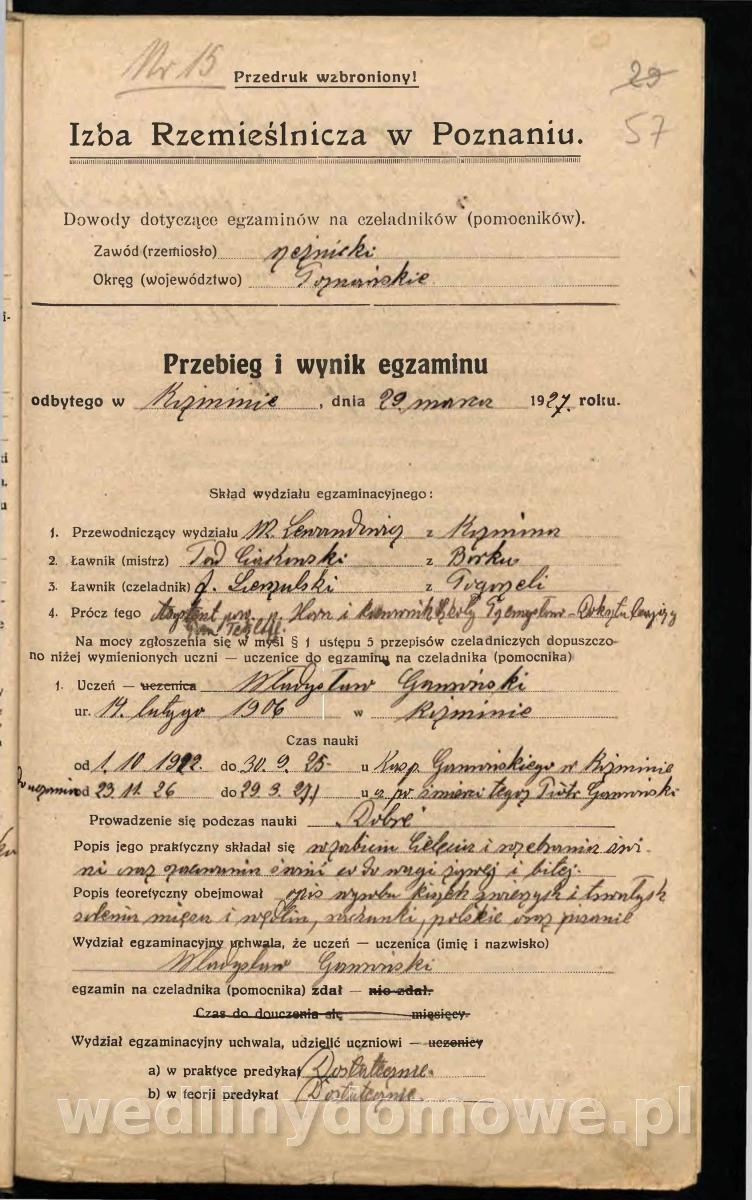 Nr 15
Przedruk wzbroniony!
29
57
Izba Rzemieślnicza w Poznaniu.
Dowody dotyczące egzaminów na czeladników (pomocników).
Zawód (rzemiosło) rzeźnicki
Okręg (województwo) Poznańskie
Przebieg i wynik egzaminu
odbytego w Koźminie, dnia 29. marca 1927. roku.
Skład wydziału egzaminacyjnego:
1. Przewodniczący wydziału W. Lewandowicz z Koźmina
2. Ławnik (mistrz) z Borku
3. Ławnik (czeladnik) z Pogorzeli
4. Prócz tego p. Horn i kierownik szkoły
Na mocy zgłoszenia się w myśl § 1 ustępu 5 przepisów czeladniczych dopuszczo-
no niżej wymienionych uczni — uczenice do egzaminu na czeladnika (pomocnika)
1. Uczeń — uczenica Władysław
ur. 14. lutego 1906 w Koźminie
Czas nauki
od 1. 10 1922. do 30. 9. 25 u Kasp. w Koźminie
od 23. 11. 26 do 29. 3. 27 u po śmierci tegoż Piotr
Prowadzenie się podczas nauki Dobre
Popis jego praktyczny składał się w zabiciu cielęcia i rozebrania świ-
ni oraz szacowania świni co do wagi żywej i bitej.
Popis teoretyczny obejmował opis wyrobu kiszek świeżych i trwałych
solenia mięsa i wędlin, rachunki, polskie oraz pisanie
Wydział egzaminacyjny uchwala, że uczeń — uczenica (imię i nazwisko)
Władysław
egzamin na czeladnika (pomocnika) zdał — nie zdał.
Czas do douczenia się miesięcy.
Wydział egzaminacyjny uchwala, udzielić uczniowi — uczenicy
a) w praktyce predykat Dostatecznie.
b) w teorji predykat Dostatecznie.
wedlinydomowe.pl